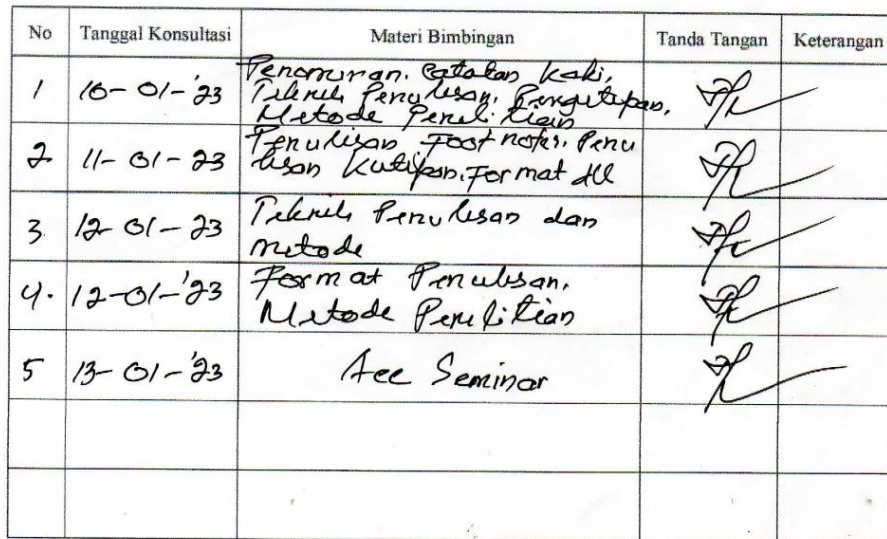 No Tanggal Konsultasi Materi Bimbingan Tanda Tangan Keterangan
1 10-01-'23 Penomoran. Catatan kaki,
Teknik Penulisan, Pengutipan,
Metode Penelitian
2. 11-01-23 Penulisan Footnotes. Penu
lisan Kutipan. Format dll
3. 12-01-23 Teknik Penulisan dan
metode
4. 12-01-'23 Format Penulisan.
Metode Penelitian
5 13-01-'23 Acc Seminar